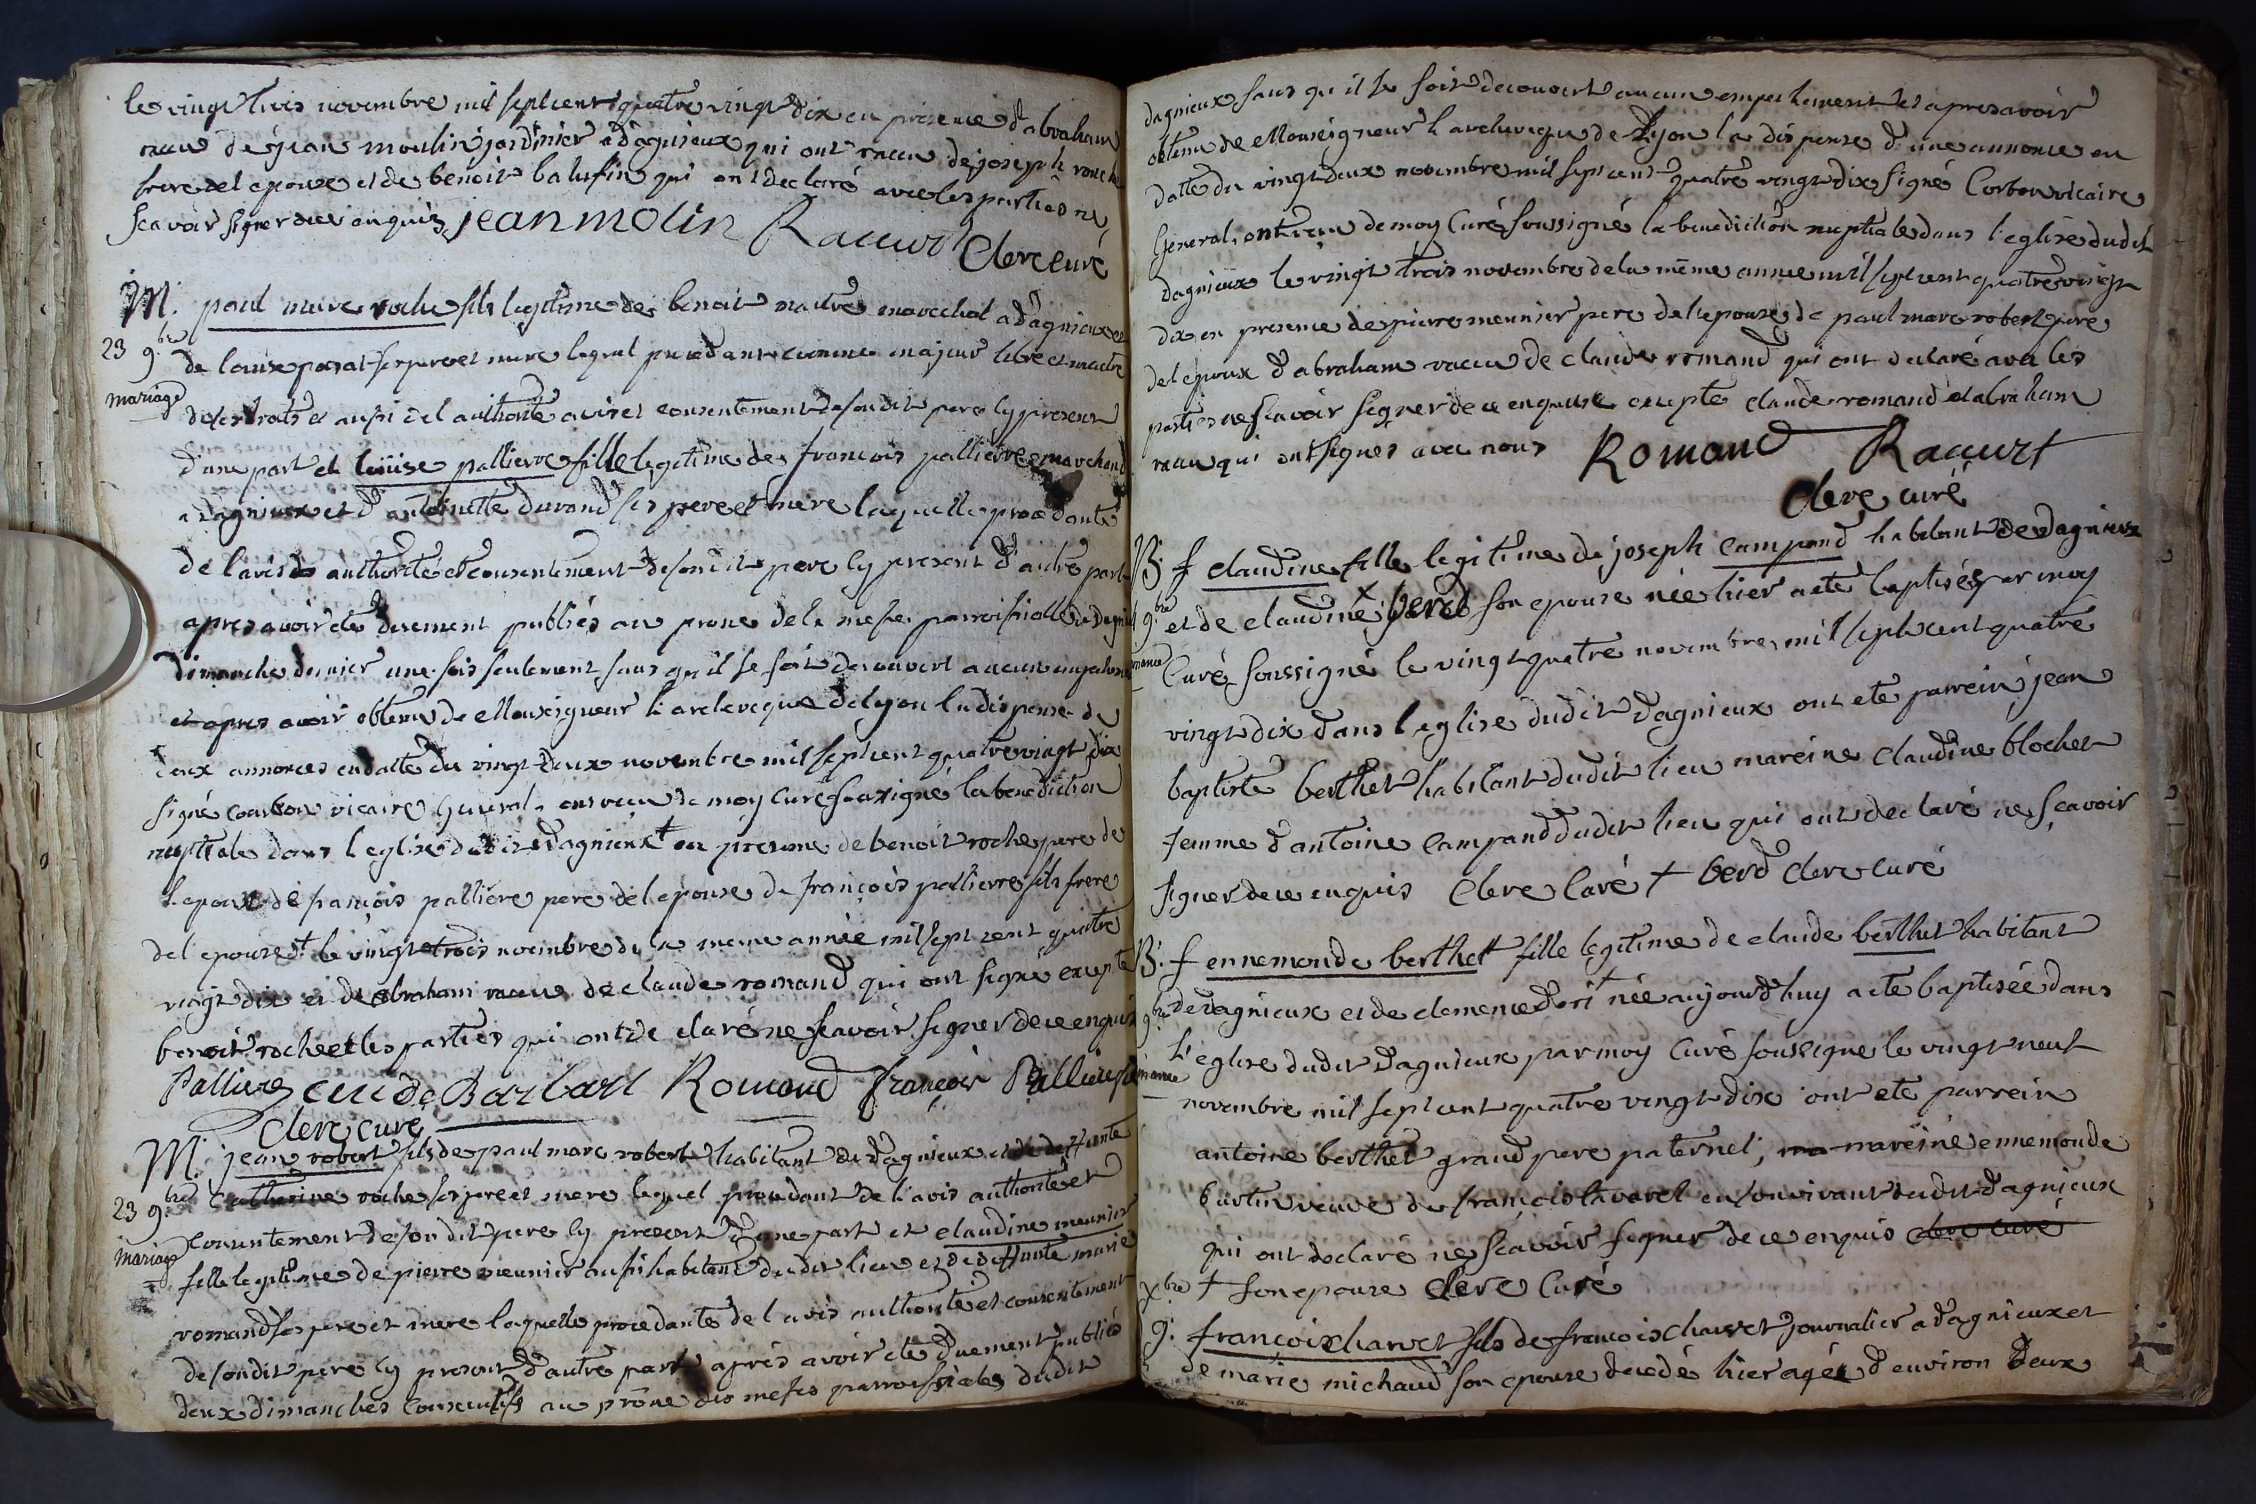 le vingt trois novembre mil sept cent quatre vingt dix en presence d'abraham
racur de jean moulin jardinier a dagnieux qui ont
frere del epouse et de benoit balufin qui ont declaré avec les parties ne
scavoir signer de ce enquis jean molin Racurt Clere curé
M. paul marc roche fils legitime de benoit maitre marechal a dagnieux et
23 9.bre de louise ses pere et mere lequel procedant comme majeur libre et maitre
mariage de ses droits et aussi del authorité avis et consentement de son dit pere cy present
d'une part et louise pallierre fille legitime de francois pallierre marchand
a dagnieux et d'antoinette durand ses pere et mere laquelle procedante
de l'avis authorité et consentement de son dit pere cy present d'autre part
apres avoir eté duement publiés au prone de la messe parroissialle de
dimanche dernier une fois seulement sans qu'il se soit decouvert aucun
et apres avoir obtenu de Monseigneur l'archeveque de lyon la dispense de
deux annonces en datte du vingt deux novembre mil sept cent quatre vingt dix
signé courbon vicaire general, ont recu de moy curé soussigné la benediction
nuptiale dans l'eglise dudit dagnieux + en presence de benoit roche pere de
l'epoux de françois palliere pere del epouse de françois pallierre fils frere
del epouse + le vingt trois novembre de la meme année mil sept cent quatre
vingt dix et de abraham racur de claude romand qui ont signé excepté
benoit roche et les parties qui ont declaré ne scavoir signer de ce enquis
Palliere Barbarl Romand françois Palliere
Clere curé
M. jean robert fils de paul marc robert habitant de dagnieux et de deffunte
23 9.bre Catherine roche ses pere et mere lequel procedant de l'avis authorité et
mariage consentement de son dit pere cy present d'une part et claudine meunier
fille legitime de pierre meunier aussi habitant dudit lieu et de deffunte marie
romand ses pere et mere laquelle procedante de l avis authorité et consentement
de son dit pere cy present d'autre part aprés avoir eté duement publiés
deux dimanches consecutifs au prône des messes parroissiales dudit
dagnieux sans qu il se soit decouvert aucun empechement et apres avoir
obtenu de Monseigneur l archeveque de Lyon la dispense d'une annonce en
datte du vingt deux novembre mil sept cent quatre vingt dix signé Corbon vicaire
General, ont recu de moy Curé soussigné la benediction nuptiale dans l'eglise dudit
dagnieux le vingt trois novembre de la même année mil sept cent quatre vingt
dix en presence de pierre meunier pere del epouse de paul marc robert pere
del epoux d'abraham racur de claude romand qui ont declaré avec les
parties ne scavoir signer de ce enquis excepté claude romand et abraham
racur qui ont signés avec nous Romand Racurt
Clere curé
B. f claudine fille legitime de joseph campand habitant de dagnieux
9.bre et de claudine son epouse née hier a eté baptisée par moy
Curé soussigné le vingt quatre novembre mil sept cent quatre
vingt dix dans l'eglise dudit dagnieux ont ete parrein jean
baptiste berthet habitant dudit lieu mareine claudine blochet
femme d'antoine campand dudit lieu qui ont declaré ne sçavoir
signer de ce enquis Clere Curé + berd Clere curé
B. f ennemonde berthet fille legitime de claude berthet habitant
9.bre de dagnieux et de clemence née aujourd'huy a ete baptisée dans
l'eglise dudit dagnieux par moy curé soussigné le vingt neuf
novembre mil sept cent quatre vingt dix ont ete parrein
antoine berthet grand pere paternel, ma mareine ennemonde
burtin veuve de françois en son vivant dudit dagnieux
qui ont declaré ne scavoir signer de ce enquis clere curé
X.bre + son epouse Clere Curé
g. françois charvet fils de francois charvet journalier a dagnieux et
de marie michaud son epouse decedé hier agée d'environ deux